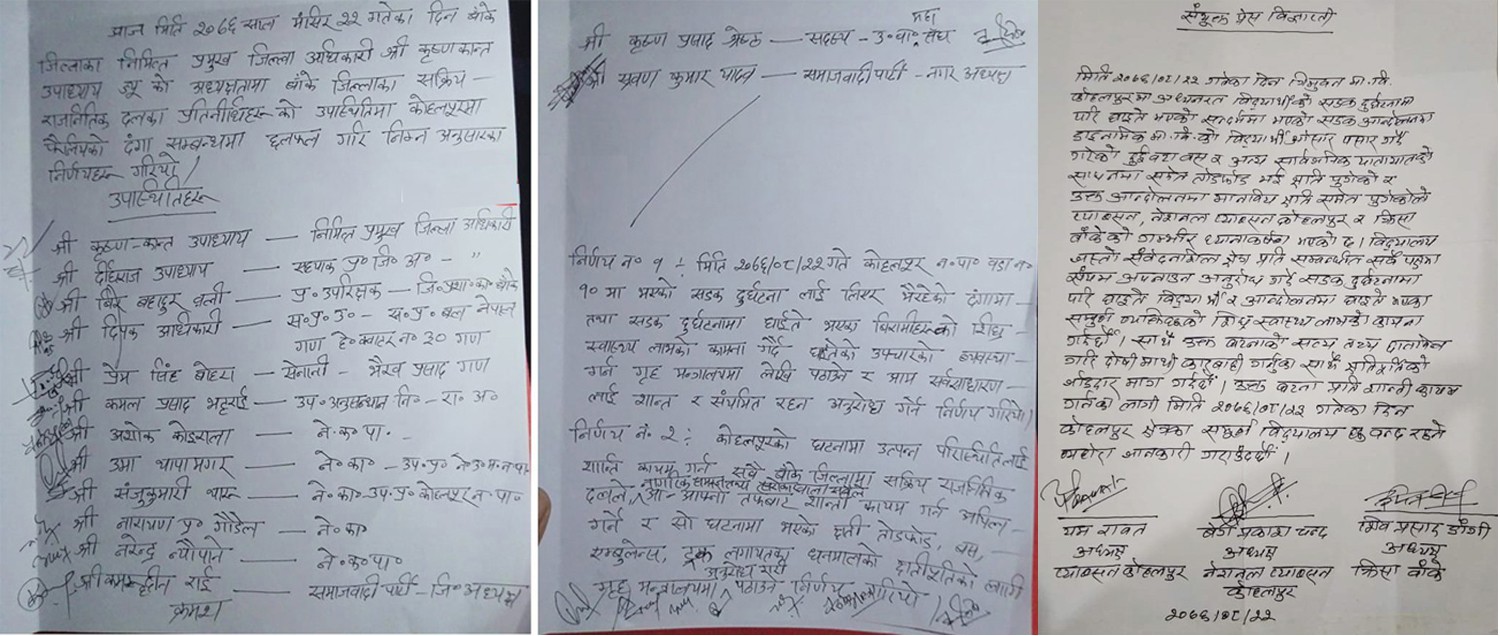 आज मिति २०७६ साल मंसिर २२ गतेका दिन बाँके
जिल्लाका निमित्त प्रमुख जिल्ला अधिकारी श्री कृष्ण कान्त
उपाध्याय ज्यू को अध्यक्षतामा बाँके जिल्लाका सक्रिय
राजनितिक दलका प्रतिनीधिहरू को उपस्थितिमा कोहलपुरमा
दंगा सम्बन्धमा छलफल गरि निम्न अनुसारका
निर्णयहरू गरियो।
उपस्थितिहरू
श्री कृष्ण-कान्त उपाध्याय — निमित्त प्रमुख जिल्ला अधिकारी
श्री उपाध्याय — सहायक प्र॰जि॰अ॰ - "
श्री विर बहादुर वली — प्र॰ उपरिक्षक - जि॰प्र॰का॰ बाँके
श्री दिपक अधिकारी — स॰प्र॰उ॰ - स॰प्र॰ बल नेपाल
गण हे॰क्वाटर न॰ ३० गण
श्री प्रेम सिंह बोहरा — सेनानी - भैरव प्रसाद गण
श्री कमल प्रसाद भट्टराई - उप॰ अनुसन्धान नि॰ - रा॰ अ॰
श्री अशोक कोइराला — ने॰क॰पा॰ -
श्री उमा थापा मगर — ने॰का॰ - उप॰प्र॰ ने॰उ॰म॰न॰पा
श्री संजुकुमारी थारू — ने॰का॰-उप॰प्र॰ कोहलपुर न॰पा॰
श्री नारायण प्र॰ गौडेल — ने॰का॰
श्री नरेन्द्र न्यौपाने — ने॰क॰पा॰
श्री कमरुद्दीन राई — समाजवादी पार्टी - जि॰ अध्यक्ष
क्रमश
महा
श्री कृष्ण प्रसाद श्रेष्ठ — सदस्य - उ॰वा॰ संघ
श्री श्रवण कुमार यादव — समाजवादी पार्टी - नगर अध्यक्ष
निर्णय न॰ १ ÷ मिति २०७६/०८/२२ गते कोहलपुर न॰पा॰ वडा न॰
१० मा भएको सडक दुर्घटना लाई लिएर भैरहेको दंगामा
तथा सडक दुर्घटनामा घाईते भएका बिरामीहरूको शिघ्र
स्वास्थ्य लाभको कामना गर्दै घाईतेको उपचारको व्यवस्था
गर्न गृह मन्त्रालयमा लेखि पठाउने र आम सर्वसाधारण
लाई शान्त र संयमित रहन अनुरोध गर्ने निर्णय गरियो।
निर्णय नं. २ ÷ कोहलपुरको घटनामा उत्पन्न परिस्थितिलाई
शान्ति कायम गर्न सबै बाँके जिल्लामा सक्रिय राजनितिक
दलले, आ-आफ्नो तर्फबाट शान्ती कायम गर्न अपिल
गर्ने र सो घटनामा भएको क्षती तोडफोड, बस,
एम्बुलेन्स, ट्रक लगायतका धनमालको क्षतीपूर्तिको लागी
अनुरोध गरी
गृह मन्त्रालयमा पठाउने निर्णय गरियो।
संयुक्त प्रेस विज्ञप्ती
मिति २०७६/०८/२२ गतेका दिन त्रिभुवन मा.वि.
कोहलपुरमा अध्ययनरत विद्यार्थीको सडक दुर्घटनामा
परि घाइते भएको सन्दर्भमा भएको सडक आन्दोलनमा
डाइनामिक मा.वि. को विद्यार्थी ओसार पसार गर्दै
गरेको दुईवटा बस र अन्य सार्वजनिक यातायातको
साधनमा समेत तोडफोड भई क्षति पुगेको र
उक्त आन्दोलनमा मानविय क्षति समेत पुगेकोले
प्याब्सन, नेशनल प्याब्सन कोहलपुर र क्रिसा
बाँकेको गम्भीर ध्यानाकर्षण भएको छ। विद्यालय
जस्तो संवेदनशिल क्षेत्र प्रति सम्बन्धित सबै पक्षका
संयम अपनाउन अनुरोध गर्दै सडक दुर्घटनामा
परि घाइते विद्यार्थी र आन्दोलनमा घाइते भएका
सम्पुर्ण व्यक्तिहरूको शिघ्र स्वास्थ्य लाभको कामना
गर्दछौं। साथै उक्त घटनाको सत्य तथ्य छानविन
गरि दोषी माथी कारबाही गर्नुका साथै क्षतिपूर्तिको
जोडदार माग गर्दछौं। उक्त घटना प्रति शान्ती कायम
गर्नको लागी मिति २०७६/०८/२३ गतेका दिन
कोहलपुर क्षेत्रका सम्पुर्ण विद्यालय बन्द रहने
व्यहोरा जानकारी गराउँदछौं।
यम रावत
अध्यक्ष
प्याब्सन कोहलपुर
प्रकाश चन्द
अध्यक्ष
नेशनल प्याब्सन
कोहलपुर
शिव प्रसाद डाँगी
अध्यक्ष
क्रिसा बाँके
२०७६/०८/२२